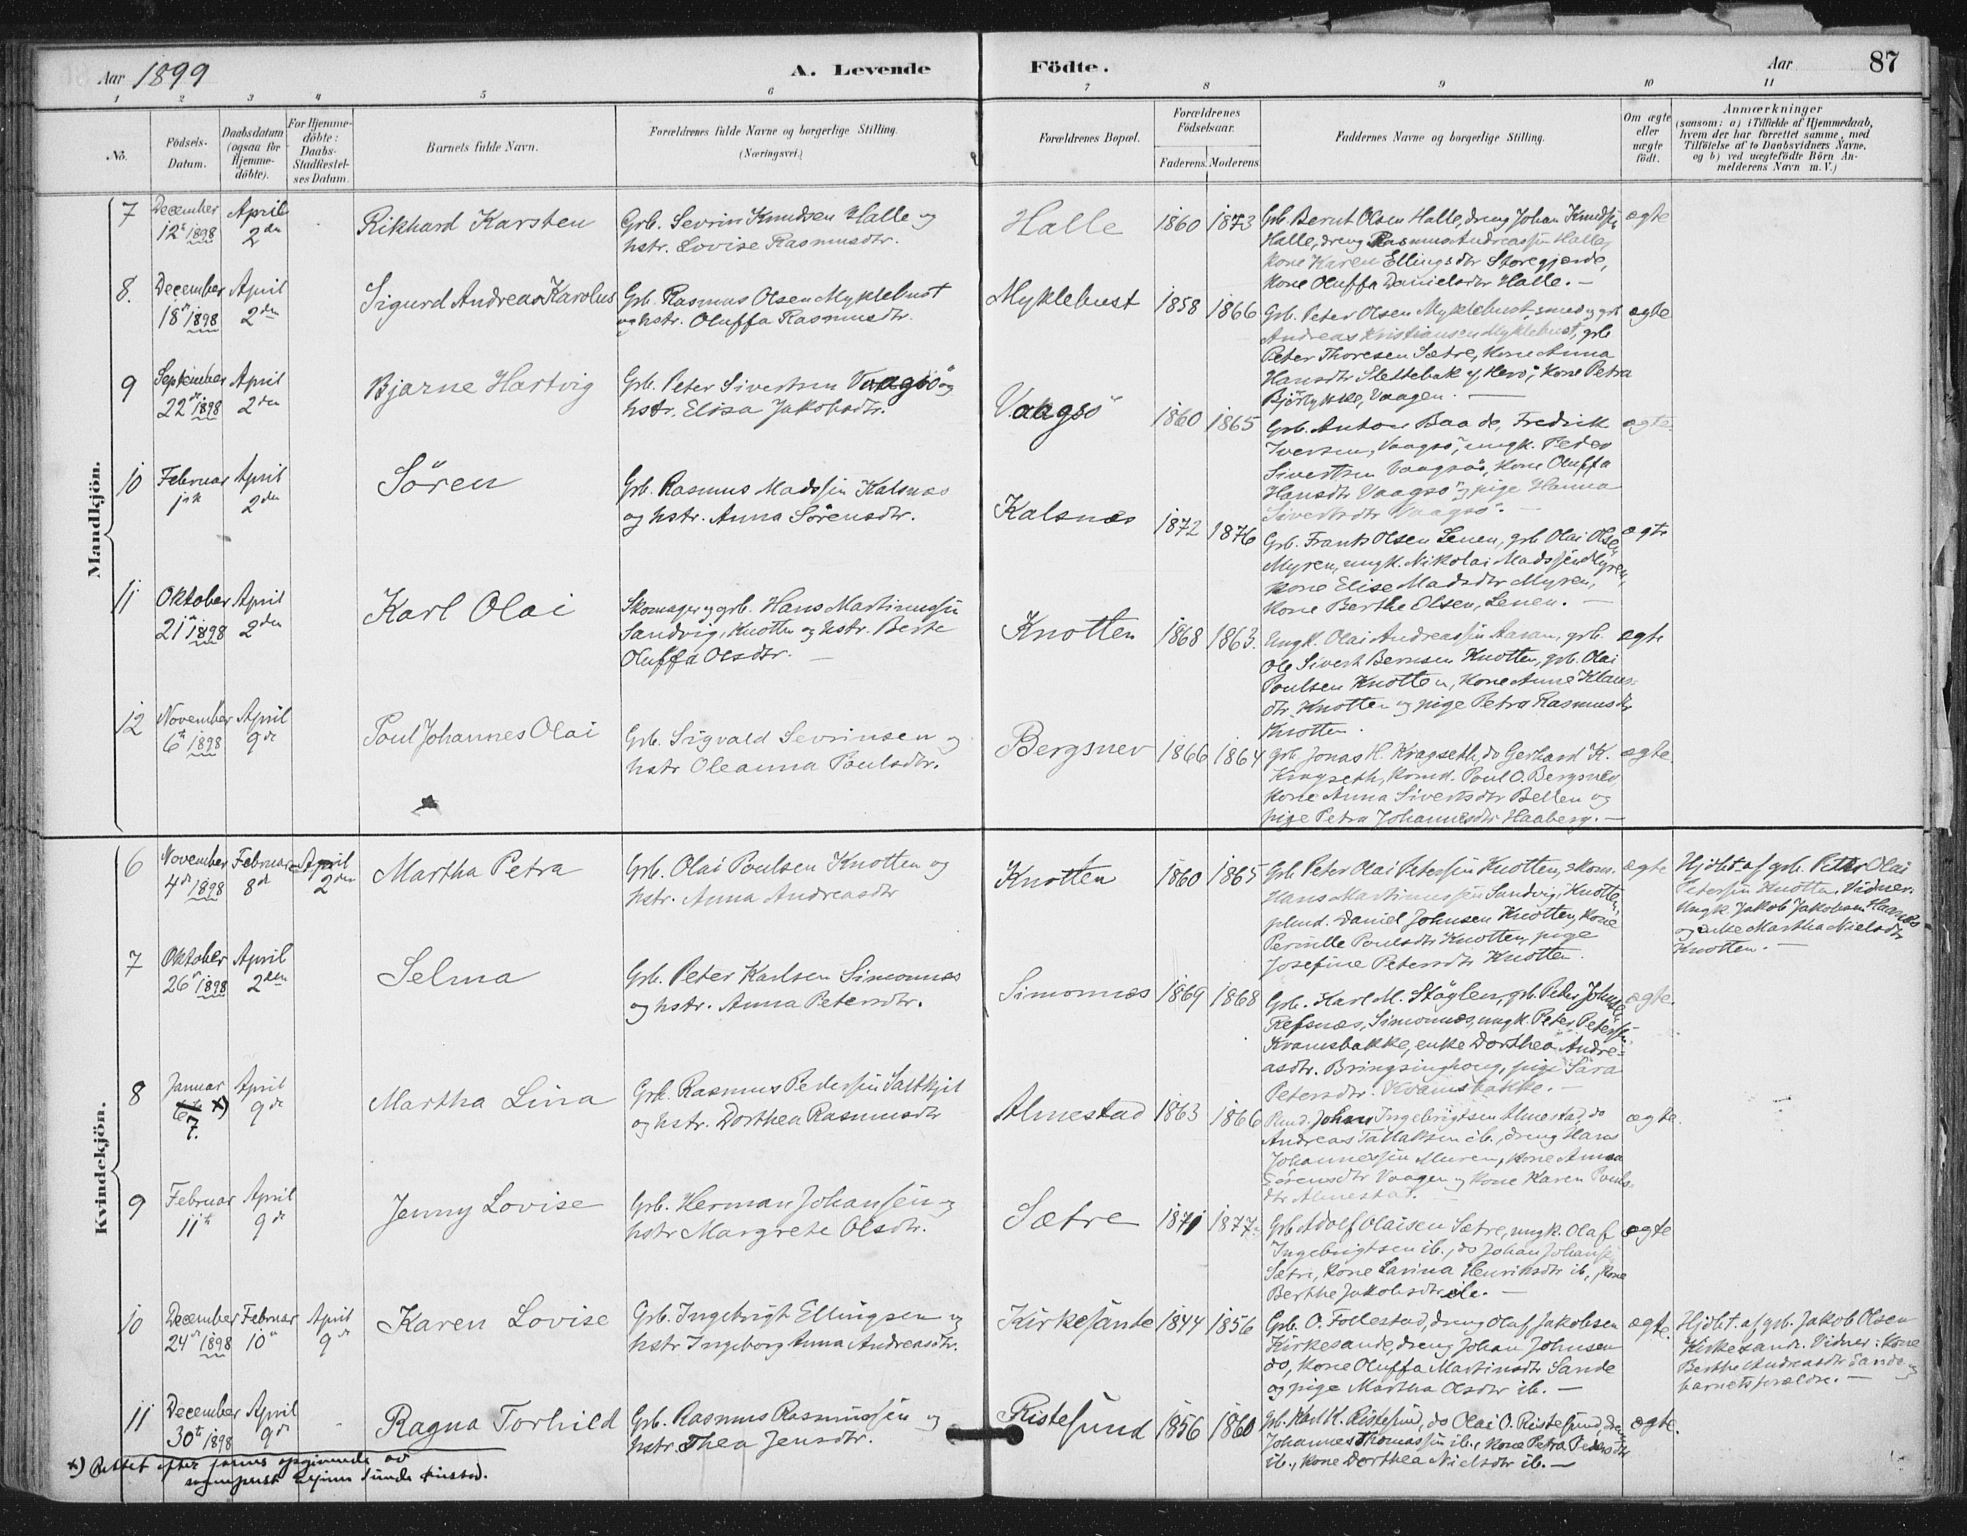 Aar 1899
A. Levende Födte.
Aar
87
1 2 3 4 5 6 7 8 9 10 11
No.
Födsels-Datum.
Daabsdatum (ogsaa for Hjemme-döbte).
For Hjemme-döbte: Daabs-Stadfæstel-ses Datum.
Barnets fulde Navn.
Forældrenes fulde Navne og borgerlige Stilling. (Næringsvei.)
Forældrenes Bopæl.
Forældrenes Födselsaar.
Faderens. Moderens.
Faddernes Navne og borgerlige Stilling.
Om ægte eller uægte födt.
Anmærkninger (saasom: a) i Tilfælde af Hjemmedaab, hvem der har forrettet samme, med Tilföielse af to Daabsvidners Navne, og b) ved uægtefödte Börn An-melderens Navn m. V.)
Mandkjön.
7 December 12te 1898 April 2den Rikhard Karsten
Grb. Sevrin Knudsen Halle og
hstr. Lovise Rasmusdtr.
Halle 1860 1873
Grb. Bernt Olsen Halle, dreng Johan Knudsen
Halle, dreng Rasmus Andreassen Halle,
Kone Karen Ellingsdtr Storegjerde,
Kone Oluffa Danielsdtr Halle. —
ægte
8. December 18de 1898 April 2den Sigurd Andreas Karolus
Grb. Rasmus Olsen Myklebust
og hstr. Oluffa Rasmusdtr.
Myklebust 1858 1866
Grb. Peter Olsen Myklebust, smed og grb
Andreas Kristiansen Myklebust, grb.
Peter Thoresen Sætre, Kone Anna
Hansdtr Slettebak af Herö, Kone Petra
Björlykke, Vaagen. —
ægte
9 September 22de 1898 April 2den Bjarne Hartvig
Grb. Peter Sivertsen Vaagsö og
hstr. Elisa Jakobsdtr.
Vaagsö 1860 1865
Grb. Anton Baade, Fredrik
Iversen, Vaagsö, ungk. Peder
Sivertsen Vaagsö, Kone Oluffa
Hansdtr Vaagsö og pige Hanna
Sivertsdtr Vaagsö. —
ægte.
10 Februar April 2den Sören
Grb. Rasmus Madssen Kalsnæs
og hstr. Anna Sörensdtr.
Kalsnæs 1872 1876
Grb. Frants Olsen Lenen, grb Olai Olsen
Myren, ungk. Nikolai Madssen Myren,
Kone Elise Madsdtr Myren,
Kone Berthe Olsen, Lenen. —
ægte
11 Oktober 21de 1898 April 2den Karl Olai
Skomager og grb. Hans Martinussen
Sandvig, Knotten og hstr. Berte
Oluffa Olsdtr. —
Knotten 1868 1863.
Ungk. Olai Andreassen Aaram, grb.
Ole Sivert Bernsen Knotten, grb. Olai
Poulsen Knotten, Kone Anne Klaus-
dtr Knotten og pige Petra Rasmusdtr
Knotten.
ægte
12 November 6te 1898 April 9de Poul Johannes Olai
Grb. Sigvald Sevrinsen og
hstr Oleanna Poulsdtr.
Bergsnev 1866 1864
grb. Jonas H. Kragseth, do Gerhard K.
Kragseth, Poul O. Bergsnev,
Kone Anna Sivertsdtr Bellen og
pige Petra Johannesdtr Haaberg. —
ægte.
Kvindekjön.
6 November 4de 1898 Februar 8de April 2den Martha Petra
Grb. Olai Poulsen Knotten og
hstr. Anna Andreasdtr
Knotten 1860 1865
Grb Peter Olai Peterssen Knotten, skom.
Hans Martinussen Sandvig, Knotten,
Daniel Johnsen Knotten, Kone
Pernille Poulsdtr Knotten, pige
Josefine Petersdtr Knotten.
ægte
Hjdbt. af grb. Peter Olai
Peterssen Knotten. Vidner:
Ungk. Jakob Jakobsen Haanæs
og enke Martha Nielsdtr
Knotten. —
7 Oktober 26de 1898 April 2den Selma
Grb. Peter Karlsen Simonnæs
og hstr. Anna Petersdtr.
Simonnæs 1869 1868
Grb. Karl M. Stöylen, grb. Peter Johnsen
Refsnæs, Simonnæs, ungk. Peter Peterssen
Kvamsbakke, enke Dorthea Andre-
asdtr. Bringsinghoug, pige Sara
Petersdtr. Kvamsbakke. —
ægte.
8 Januar 6te x) 7. April 9de Martha Lina
Grb. Rasmus Pederssen Saltkjel
og hstr. Dorthea Rasmusdtr
Almestad 1863 1866
Johan Ingebrigtsen Almestad, do
Andreas Tallaksen ib., dreng Hans
Johannessen Muren, Kone Anna
Sörensdtr Vaagen og Kone Karen Pouls-
dtr Almestad. —
ægte.
9 Februar 11te April 9de Jenny Lovise
Grb. Herman Johansen og
hstr Margrete Olsdtr.
Sætre 1871 1877
Grb Adolf Olaisen Sætre, ungk. Olaf
Ingebrigtsen ib., do Johan Johans.
Sætre, Kone Lavina Henriksdtr ib., Kone
Berthe Jakobsdtr ib. —
ægte
10 December 24de 1898 Februar 10de April 9de Karen Lovise
Grb. Ingebrigt Ellingsen og
hstr Ingeborg Anna Andreasdtr.
Kirkesande 1844 1856
Grb. O. Follestad, dreng Olaf Jakobsen
Kirkesande, dreng Johan Johnsen
do, Kone Oluffa Martinsdtr Sande
og pige Martha Olsdtr ib. —
ægte.
Hjdbt. af grb. Jakob Olsen
Kirkesande. Vidner: Kone
Berthe Andreasdtr Sande og
barnets forældre. —
11 December 30te 1898 April 9de Ragna Torhild
Grb. Rasmus Rasmussen og
hstr. Thea Jensdtr.
Ristesund 1856 1860
Grb. Karl K. Ristesund, do Olai O. Ristesund, dreng
Johannes Thomassen ib., Kone Petra Pedersdtr
ib., Kone Dorthea Nielsdtr ib. —
ægte.
x) Rettet efter opgivende av
sogneprest